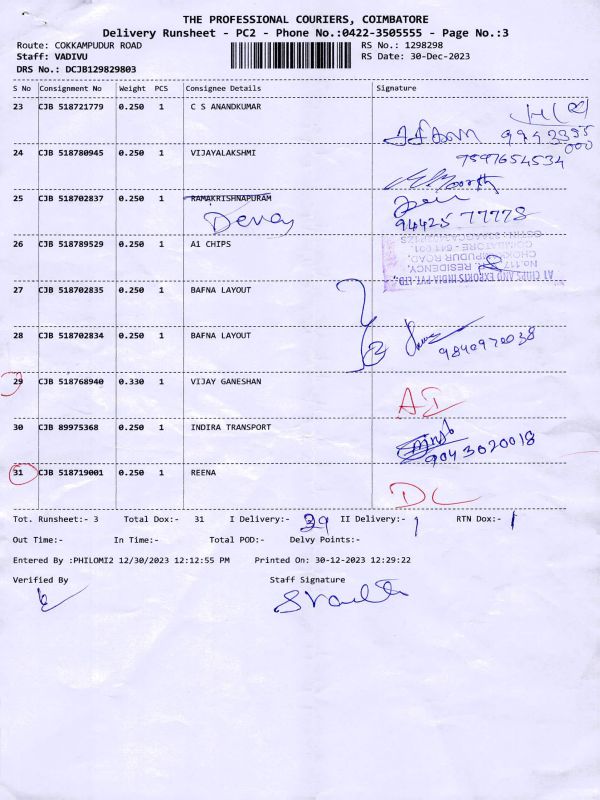 THE PROFESSIONAL COURIERS, COIMBATORE
Delivery Runsheet - PC2 - Phone No.:0422-3505555 - Page No.:3
Route: COKKAMPUDUR ROAD RS No.: 1298298
Staff: VADIVU RS Date: 30-Dec-2023
DRS No.: DCJB129829803
S No Consignment No Weight PCS Consignee Details Signature
23 CJB 518721779 0.250 1 C S ANANDKUMAR
24 CJB 518780945 0.250 1 VIJAYALAKSHMI
7597654534
25 CJB 518702837 0.250 1 RAMAKRISHNAPURAM
94425 77778
26 CJB 518789529 0.250 1 A1 CHIPS
A1 CHIPS AND EXPORTS INDIA PVT. LTD.,
27 CJB 518702835 0.250 1 BAFNA LAYOUT
28 CJB 518702834 0.250 1 BAFNA LAYOUT
9840970038
29 CJB 518768940 0.330 1 VIJAY GANESHAN
30 CJB 89975368 0.250 1 INDIRA TRANSPORT
9043020018
31 CJB 518719001 0.250 1 REENA
DC
Tot. Runsheet:- 3 Total Dox:- 31 I Delivery:- 29 II Delivery:- 1 RTN Dox:- 1
Out Time:- In Time:- Total POD:- Delvy Points:-
Entered By :PHILOMI2 12/30/2023 12:12:55 PM Printed On: 30-12-2023 12:29:22
Verified By Staff Signature